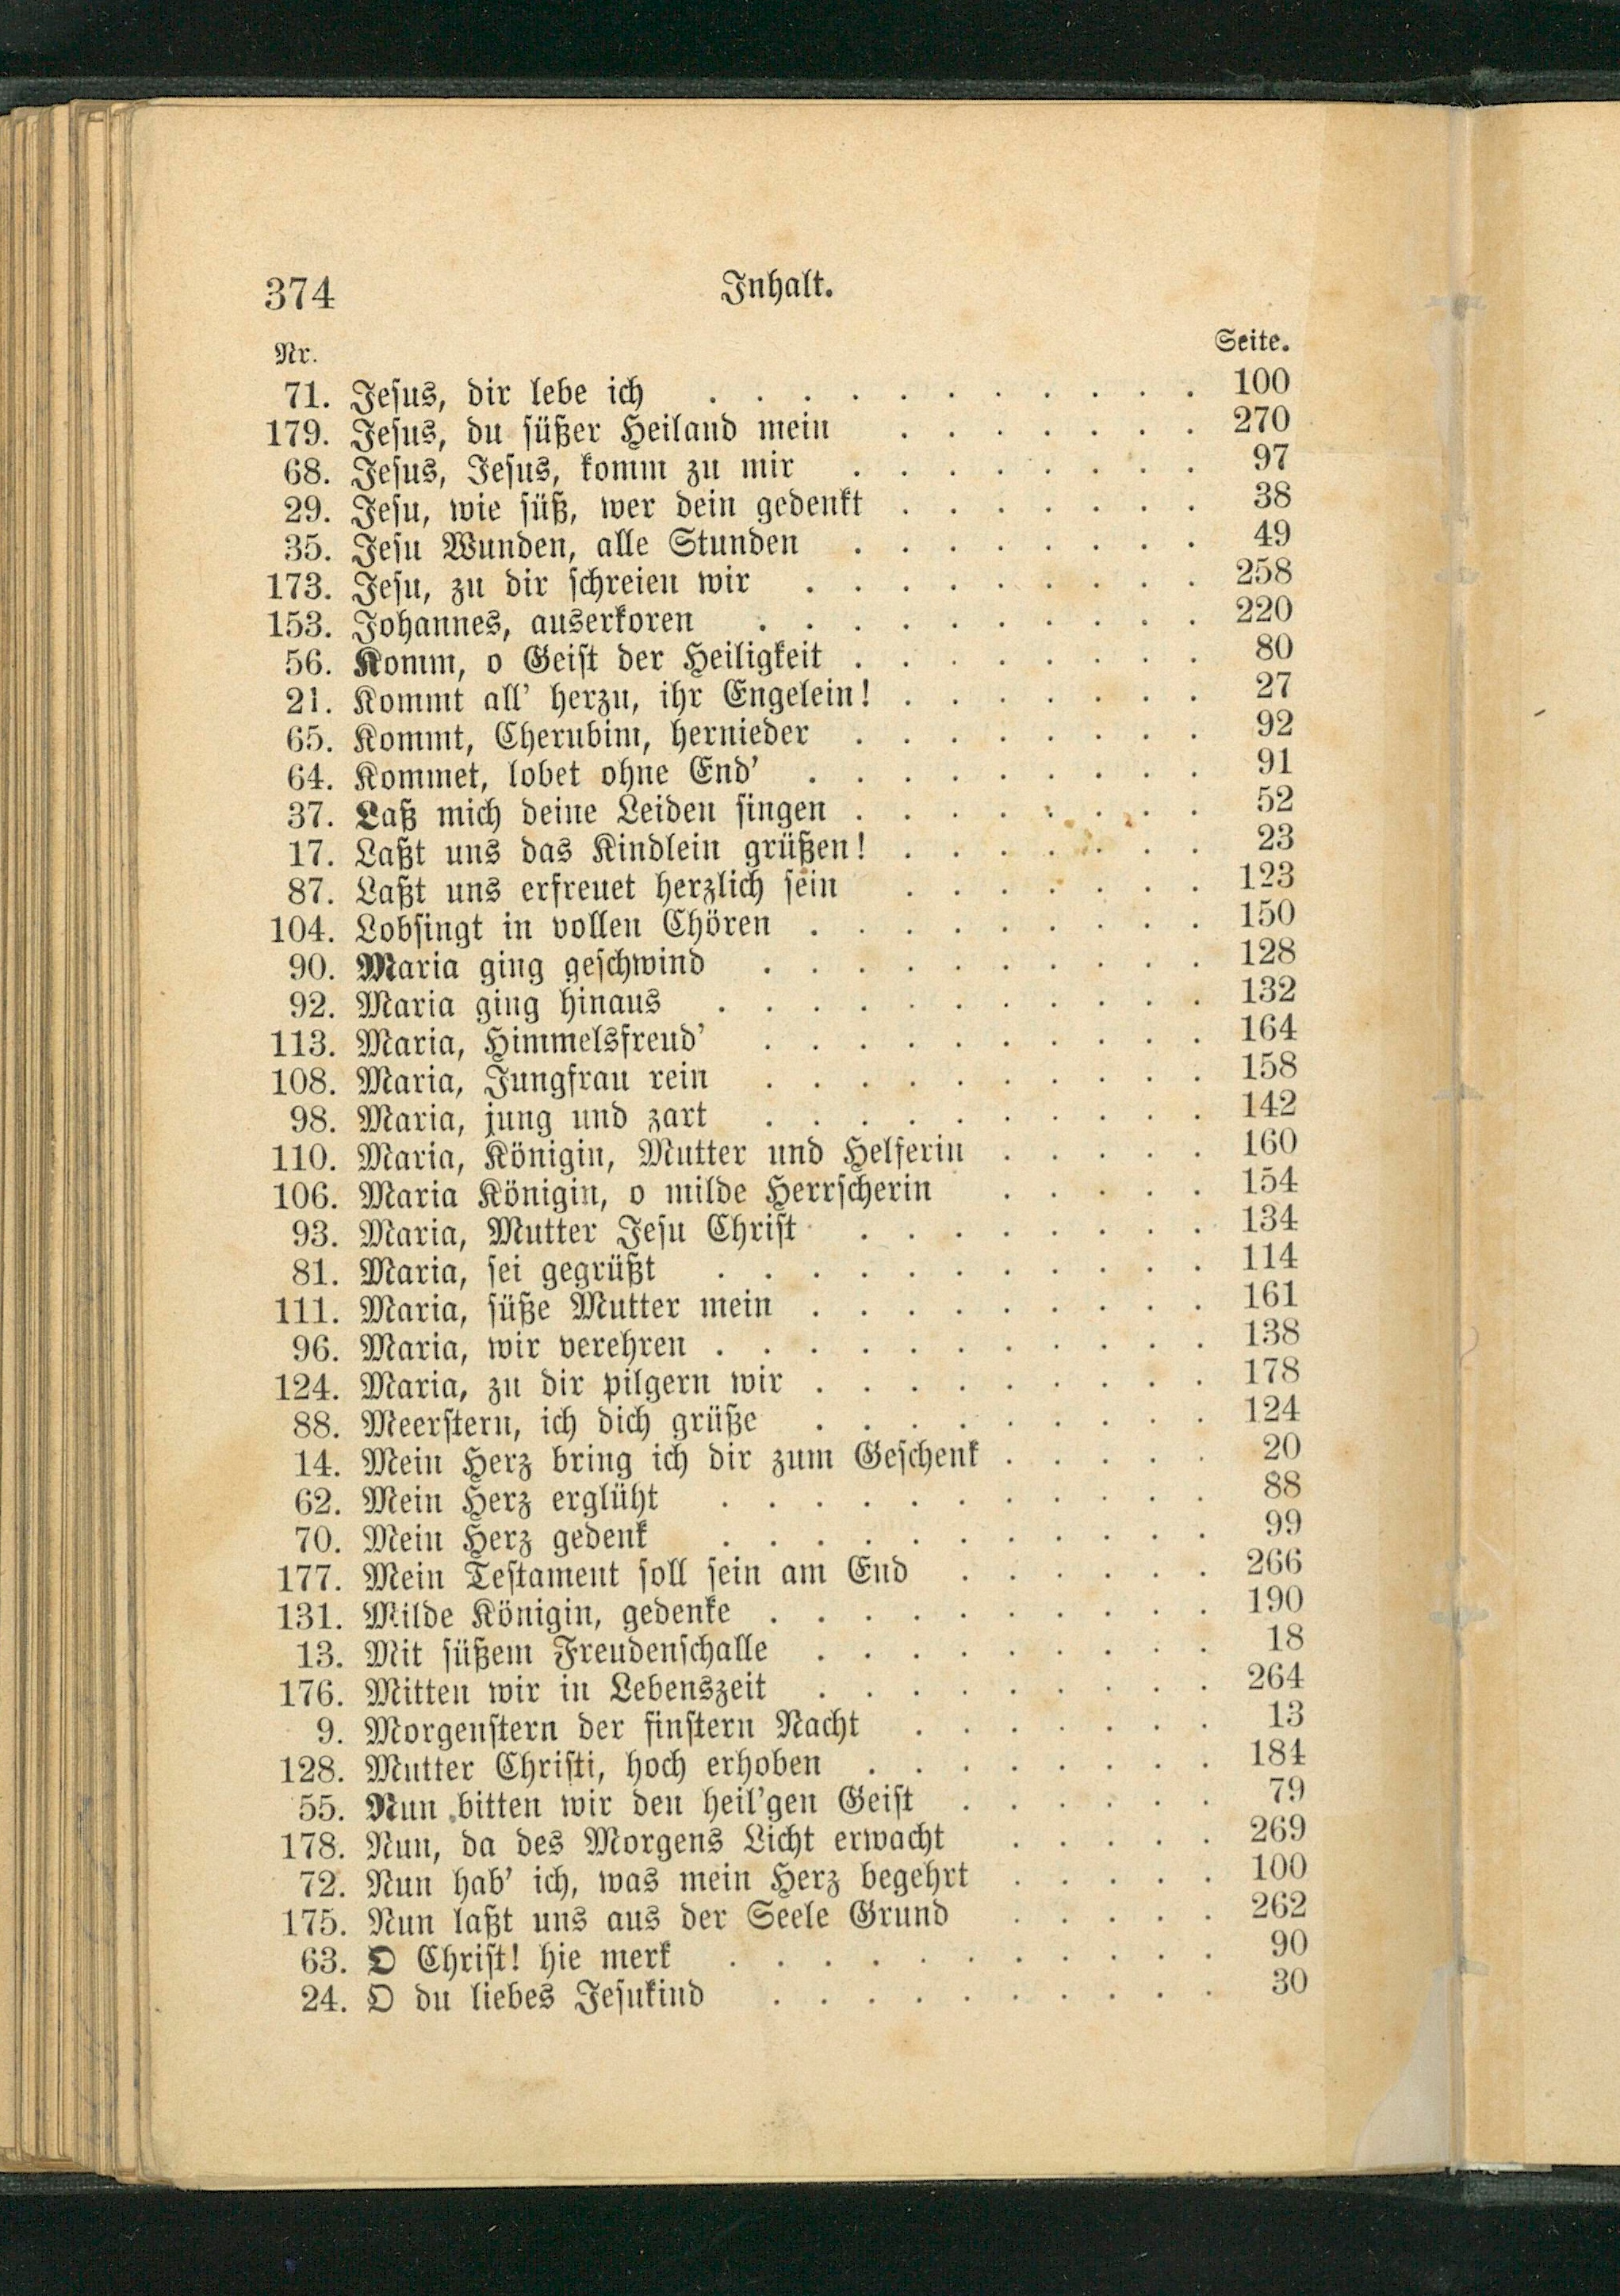 374 Inhalt.
Nr. Seite.
71. Jesus, dir lebe ich . . . . . . . . . . . 100
179. Jesus, du süßer Heiland mein . . . . . . . 270
68. Jesus, Jesus, komm zu mir . . . . . . . . 97
29. Jesu, wie süß, wer dein gedenkt . . . . . . . 38
35. Jesu Wunden, alle Stunden . . . . . . . . 49
173. Jesu, zu dir schreien wir . . . . . . . . . 258
153. Johannes, auserkoren . . . . . . . . . . 220
56. Komm, o Geist der Heiligkeit . . . . . . . . 80
21. Kommt all' herzu, ihr Engelein! . . . . . . . 27
65. Kommt, Cherubim, hernieder . . . . . . . . 92
64. Kommet, lobet ohne End' . . . . . . . . . 91
37. Laß mich deine Leiden singen . . . . . . . . 52
17. Laßt uns das Kindlein grüßen! . . . . . . . 23
87. Laßt uns erfreuet herzlich sein . . . . . . . 123
104. Lobsingt in vollen Chören . . . . . . . . . 150
90. Maria ging geschwind . . . . . . . . . . 128
92. Maria ging hinaus . . . . . . . . . . . 132
113. Maria, Himmelsfreud' . . . . . . . . . . 164
108. Maria, Jungfrau rein . . . . . . . . . . 158
98. Maria, jung und zart . . . . . . . . . . 142
110. Maria, Königin, Mutter und Helferin . . . . . 160
106. Maria Königin, o milde Herrscherin . . . . . 154
93. Maria, Mutter Jesu Christ . . . . . . . . 134
81. Maria, sei gegrüßt . . . . . . . . . . . 114
111. Maria, süße Mutter mein . . . . . . . . . 161
96. Maria, wir verehren . . . . . . . . . . . 138
124. Maria, zu dir pilgern wir . . . . . . . . . 178
88. Meerstern, ich dich grüße . . . . . . . . . 124
14. Mein Herz bring ich dir zum Geschenk . . . . . 20
62. Mein Herz erglüht . . . . . . . . . . . 88
70. Mein Herz gedenk . . . . . . . . . . . 99
177. Mein Testament soll sein am End . . . . . . 266
131. Milde Königin, gedenke . . . . . . . . . . 190
13. Mit süßem Freudenschalle . . . . . . . . . 18
176. Mitten wir in Lebenszeit . . . . . . . . . 264
9. Morgenstern der finstern Nacht . . . . . . . 13
128. Mutter Christi, hoch erhoben . . . . . . . . 184
55. Nun bitten wir den heil'gen Geist . . . . . . 79
178. Nun, da des Morgens Licht erwacht . . . . . 269
72. Nun hab' ich, was mein Herz begehrt . . . . . 100
175. Nun laßt uns aus der Seele Grund . . . . . 262
63. O Christ! hie merk . . . . . . . . . . . 90
24. O du liebes Jesukind . . . . . . . . . . 30